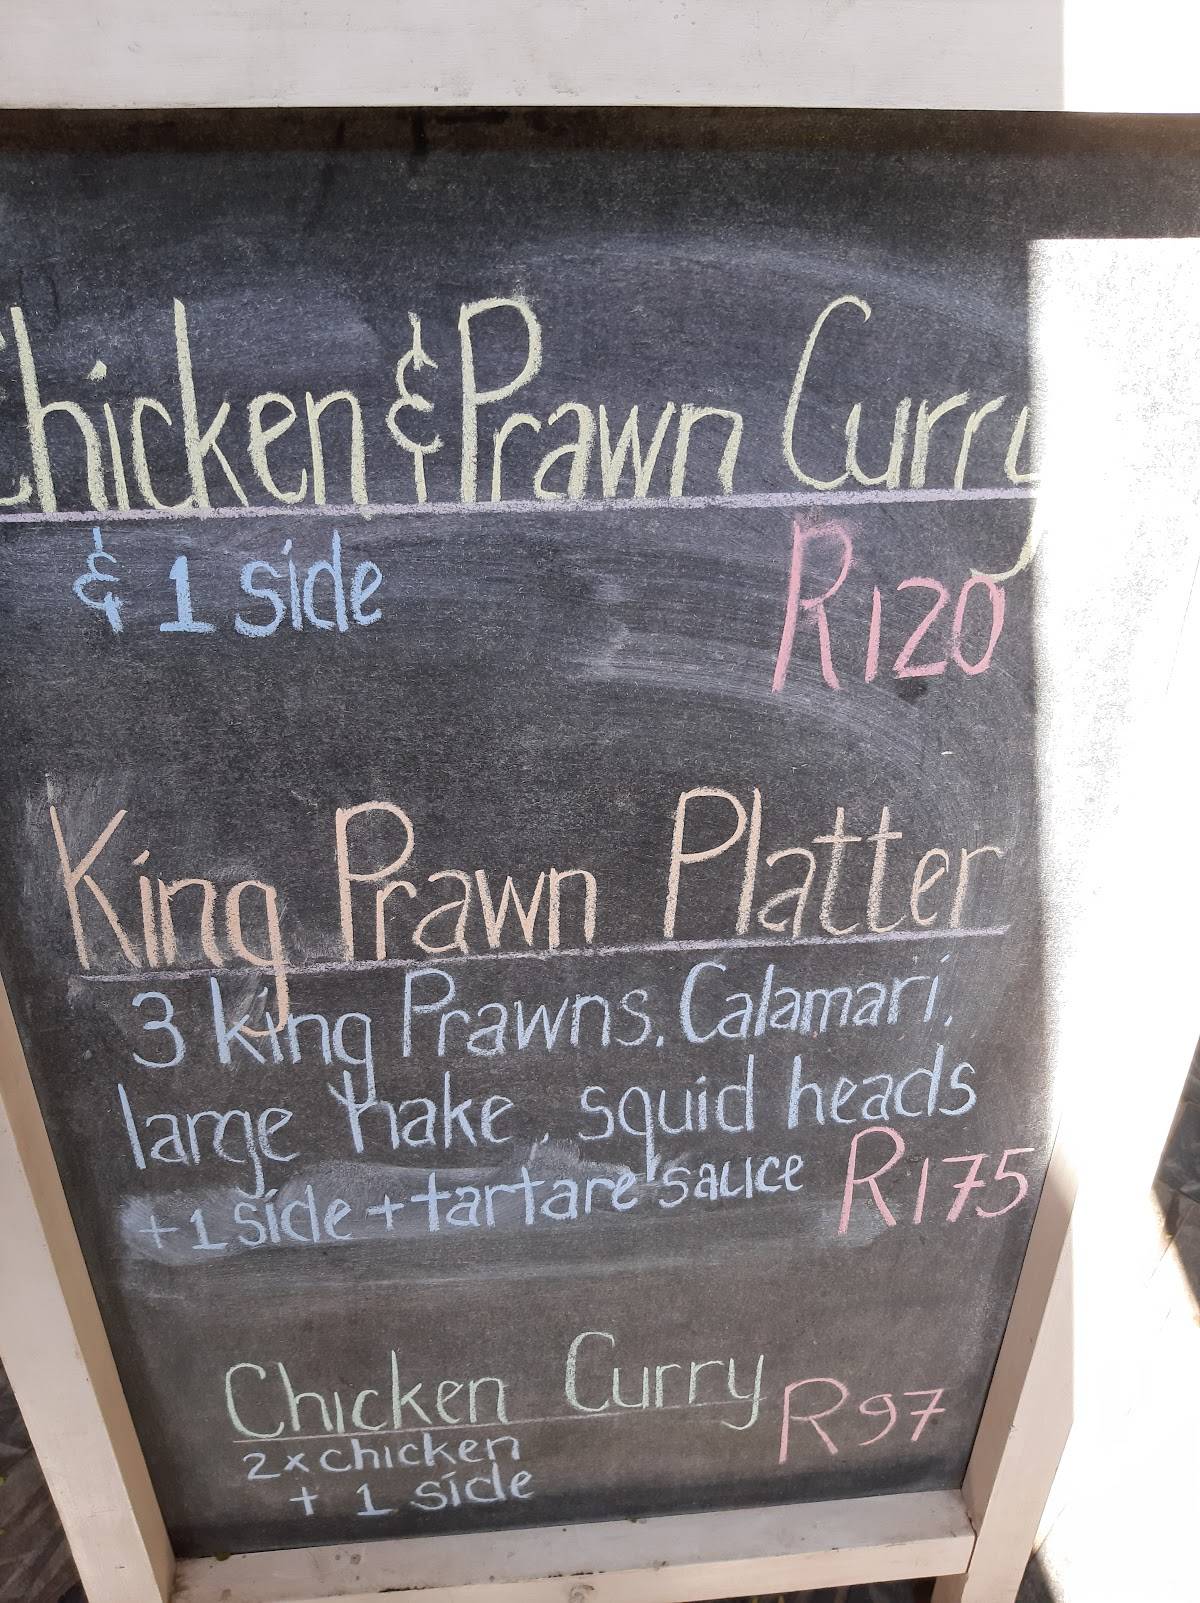 Chicken & Prawn Curry
& 1 side R120
King Prawn Platter
3 king Prawns, Calamari,
large hake, squid heads
+ 1 side + tartare sauce R175
Chicken Curry R97
2 x chicken
+ 1 side